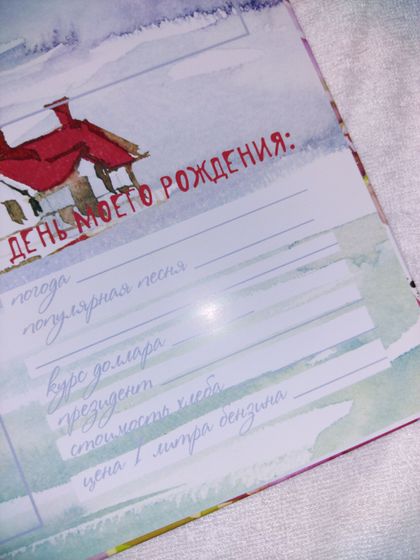 ДЕНЬ МОЕГО РОЖДЕНИЯ:
погода
популярная песня
курс доллара
президент
стоимость хлеба
цена 1 литра бензина